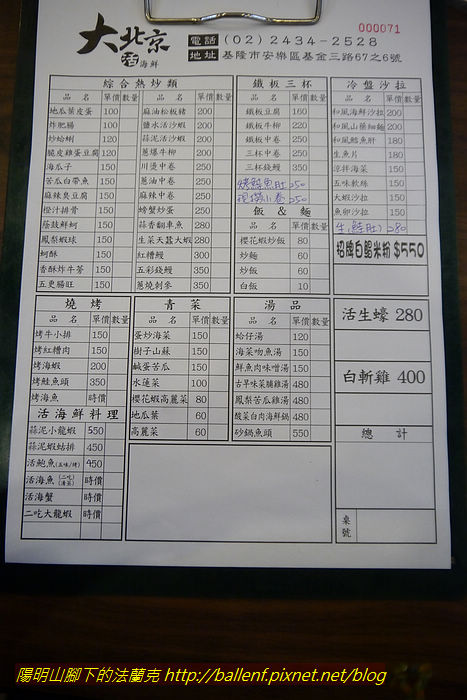 000071
大北京
活海鮮
電話 (02) 2434-2528
地址 基隆市安樂區基金三路67之6號
綜合熱炒類
品名 單價 數量 品名 單價 數量
地瓜葉皮蛋 100 麻油松板豬 200
炸肥腸 100 鹽水活沙蝦 200
炒蛤蜊 120 蒜泥活沙蝦 200
脆皮雞蛋豆腐 120 蔥爆牛柳 200
海瓜子 150 川燙中卷 250
苦瓜白帶魚 150 蔥油中卷 250
麻辣臭豆腐 150 麻辣中卷 250
橙汁排骨 150 螃蟹炒蛋 250
蔭鼓鮮蚵 150 蒜香翻車魚 280
鳳梨蝦球 150 生菜天蠶大蝦 280
蚵酥 150 紅糟鰻 300
香酥炸牛蒡 150 五彩錢鰻 350
五更腸旺 150 蔥燒刺參 350
鐵板三杯
品名 單價 數量
鐵板豆腐 160
鐵板牛柳 220
鐵板中卷 250
三杯中卷 250
三杯錢鰻 350
烤鮭魚肚 250
飯 & 麵
品名 單價 數量
櫻花蝦炒飯 80
炒麵 60
炒飯 60
白飯 10
冷盤沙拉
品名 單價 數量
和風海鮮沙拉 200
和風山藥細麵 200
和風鱈魚肝 180
生魚片 180
涼拌海菜 150
五味軟絲 150
大蝦沙拉 150
魚卵沙拉 150
生(鮭肚) 280
招牌白鯧米粉 $550
活生蠔 280
白斬雞 400
總計
桌號
燒烤
品名 單價 數量
烤牛小排 150
烤紅糟肉 150
烤海蝦 200
烤鮭魚頭 350
烤海魚 時價
活海鮮料理
蒜泥小龍蝦 550
蒜泥蝦蛄排 450
活鮑魚(五味/烤) 450
活海魚(二吃/清蒸) 時價
活海蟹 時價
二吃大龍蝦 時價
青菜
品名 單價 數量
蛋炒海菜 150
樹子山蘇 150
鹹蛋苦瓜 150
水蓮菜 100
櫻花蝦高麗菜 80
地瓜葉 60
高麗菜 60
湯品
品名 單價 數量
蛤仔湯 120
海菜吻魚湯 150
鮮魚肉味噌湯 150
古早味菜脯雞湯 480
鳳梨苦瓜雞湯 480
酸菜白肉海鮮鍋 480
砂鍋魚頭 550
陽明山腳下的法蘭克 http://ballenf.pixnet.net/blog